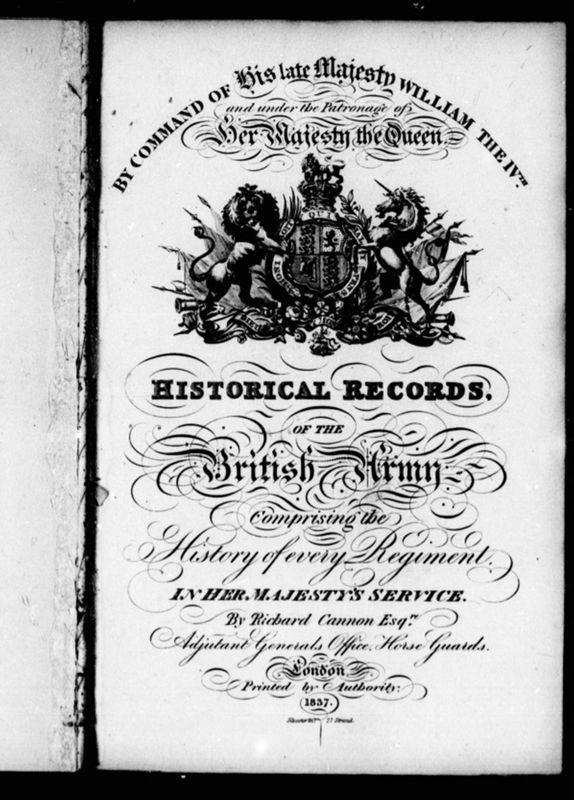 BY COMMAND OF His late Majesty WILLIAM THE IVTH
and under the Patronage of
Her Majesty the Queen.
HISTORICAL RECORDS,
OF THE
British Army
Comprising the
History of every Regiment
IN HER MAJESTY'S SERVICE.
By Richard Cannon Esqre
Adjutant Generals Office, Horse Guards.
London
Printed by Authority:
1837.
27 Strand.